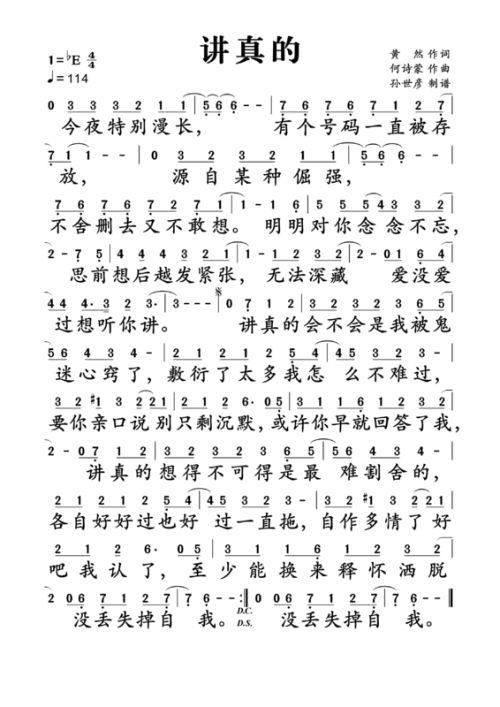 讲真的
1=♭E 4/4
♩=114
黄 然 作词
何诗蒙 作曲
孙世彦 制谱
0 3 3 3 2 1 1 | 5 6 6 - - | 7 6 7 6 7 1 2 7 |
今夜特别漫长， 有个号码一直被存
7 1 1 - - | 0 3 2 3 2 1 | 5 6 6 - - |
放， 源自某种倔强，
7 6 7 6 7 2 7 1 | 1 - 1 6 | 5 5 5 4 3 3 2 |
不舍删去又不敢想。明明对你念念不忘，
2 - 7 5 | 4 4 4 3 2 1 | 1 - 1 2 3 | 2 - 0 1 6 4 |
思前想后越发紧张，无法深藏 爱没爱
过想听你讲。 讲真的会不会是我被鬼
5 6 4 3 4 - | 2 1 2 1 2 5 4 | 4 5 1 3 4 - |
迷心窍了，敷衍了太多我怎么不难过，
要你亲口说别只剩沉默，或许你早就回答了我，
2 - 0 7 1 2 | 3 2 3 2 3 2 3 5 | 5 6 4 3 4 - |
讲真的想得不可得是最 难割舍的，
2 1 2 1 2 5 4 | 4 5 5 3 2 3 - | 3 2 #1 3 2 2 1 |
各自好好过也好 过一直拖，自作多情了好
吧我认了，至少能换来释怀洒脱
没丢失掉自 我。 没丢失掉自 我。
D.C.
D.S.